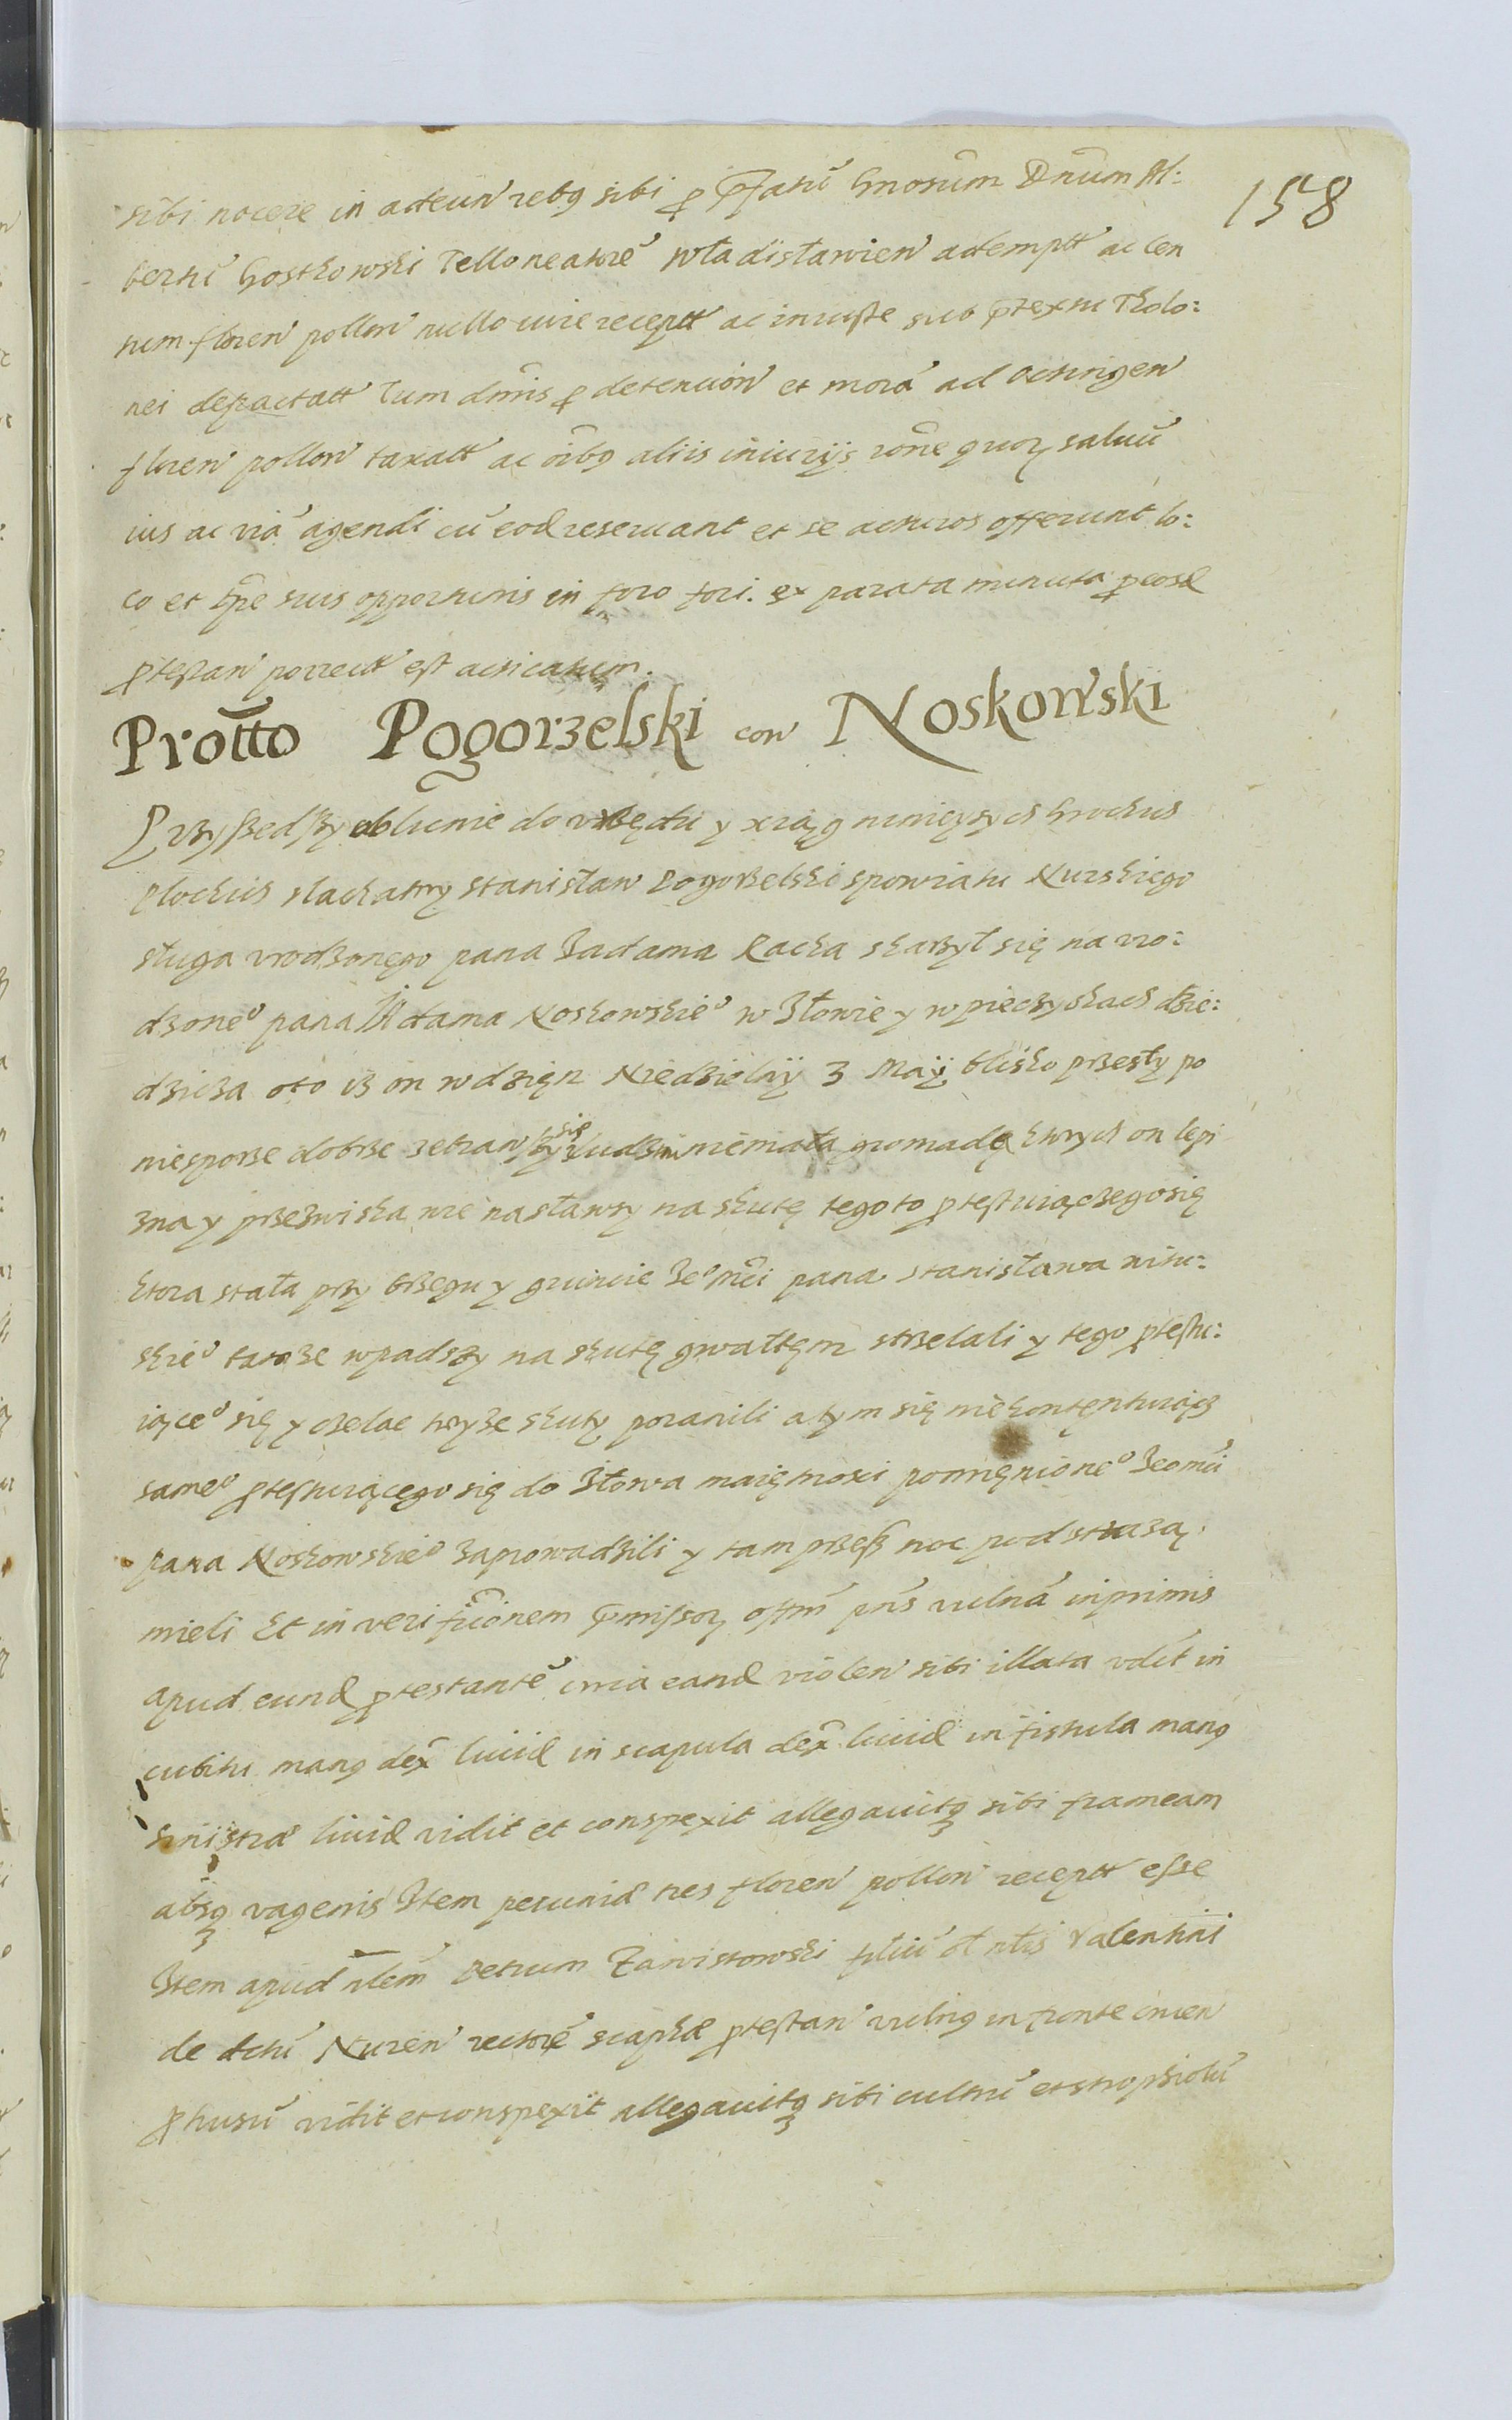 158
sibi nocere in acteun' rebq sibi p p̃fatũ Gnosum Dnum Al:
bertũ Gostkowski Telloneatorẽ Władisławien' ademptt ac Cen
tum floren' pollon' nullo iure receptt ac iniuste sub p̃textu Tholo:
nei depactatt Tum dm̃is p detencion' et morã ad octingen
floren' pollon' taxatt ac oĩbq aliis iniurijs rõne quorz saluũ
ius ac viã agendi cũ eod reseruant et se acturos offerunt lo:
co et tp̃re suis opportunis in foro fori. ex parata minuta p eosd
ptestan' porrectt est acticatum.
Prõtto Pogorzelski con' Noskowski
Przyszedszy oblicznie do vrzędu y xiąg ninieyszych Grodzkich
Płockich slachatny Stanisław Pogorzelski spowiatu Nurskiego
sługa vrodzonęgo pana Jadama Kacka skarzył się na vro:
dzoneº pana Adama Noskowskieº w Iłowie y w pieczyskach dzie:
dzicza oto isz on wdzięn Niedzielnÿ 3 Maÿ blisko przesły po
niesporze dobrze zebrawszy się zludzmi niemałą gromadę ktrych on lepi
zna y przezwiska wie nasławszy na skutę tegoto ptestuiączego się
ktora stała przy brzegu y gruncie Jeº mc̃i pana Stanisława nisu:
skieº tamze wpadszy na skutę gwałtęm strzelali y tego ptestu:
iąceº się y czeladz tryze skuty poranili a tym się niekontęntuiącz
sameº ptestuiącego się do Iłowa maiętnosci pomięnioneº Jeo mc̃i
pana Noskowskieº zaprowadzili y tam przesz noc pod strazą
mieli Et in verificõnem p̃missorz ostm̃ pñs vulnã inprimis
apud eund ptestantẽ circa eand violen' sibi illata vdlt in
cubitu manq dex̃ liuid in scapula dex̃ liuid in fistula manq
sinistræ liuid vidit et conspexit allegauitq sibi frameam
absq vagenis Item pecuniæ tres floren' pollon' receptt esse
Item apud nlem̃ Petrum Zawistowski filiũ ol nlis Valentini
de dctũ Nuren' rectorẽ scaphæ ptestan' vulnq in fronte cruen
phusũ vidit et conspexit allegauitq sibi cultrũ et strophiolũ